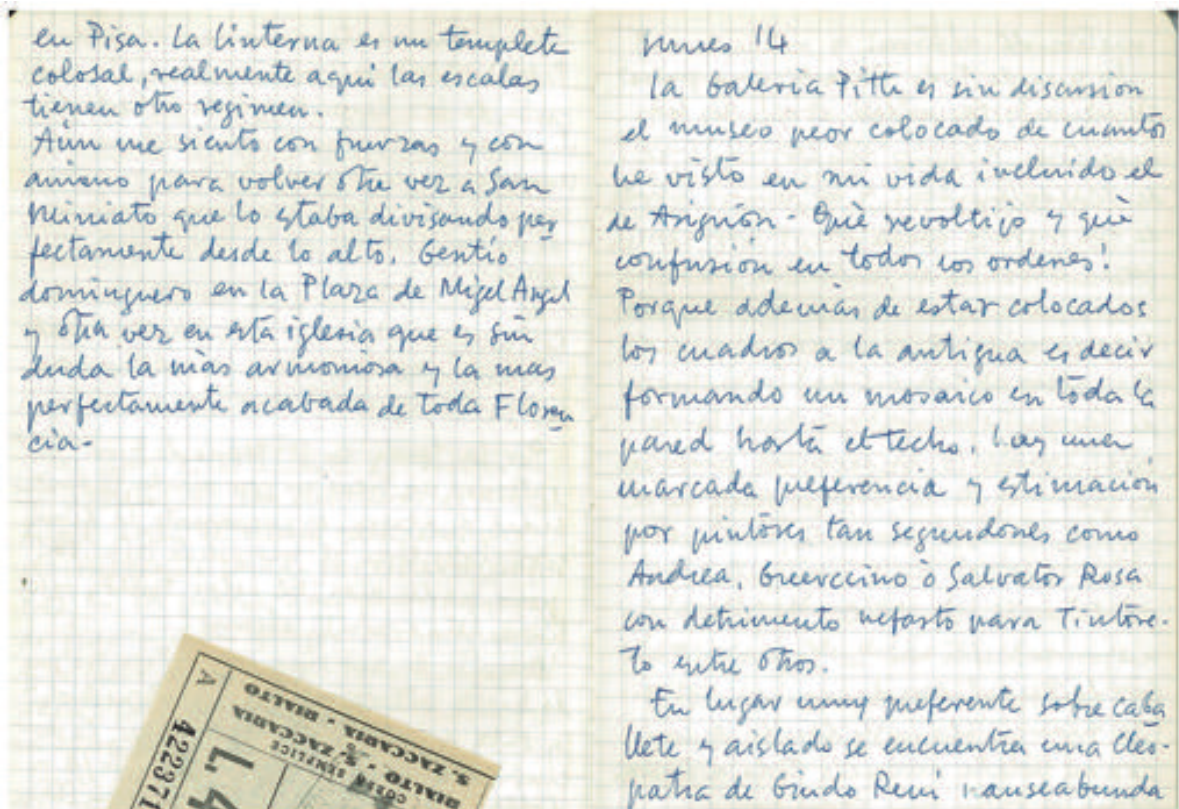 en Pisa. La linterna es un templete
colosal, realmente aqui las escalas
tienen otro regimen.
Aún me siento con fuerzas y con
animo para volver otra vez a San
Miniato que lo estaba divisando per
fectamente desde lo alto. Gentío
dominguero en la Plaza de Migel Angel
y otra vez en esta iglesia que es sin
duda la más armoniosa y la mas
perfectamente acabada de toda Floren
cia-
S. ZACCARIA - RIALTO
RIALTO - S. ZACCARIA
CORSA SEMPLICE
RIALTO
A
422371
L. 4
lunes 14
La Galeria Pitti es sin discusion
el museo peor colocado de cuantos
he visto en mi vida incluido el
de Avignón - Qué revoltijo y qué
confusión en todos los ordenes!
Porque además de estar colocados
los cuadros a la antigua es decir
formando un mosaico en toda la
pared hasta el techo, hay una
marcada preferencia y estimación
por pintores tan segundones como
Andrea, Gueercino o Salvator Rosa
con detrimento nefasto para Tintore-
to entre otros.
En lugar muy preferente sobre caba
llete y aislado se encuentra una Cleo-
patra de Guido Reni nauseabunda